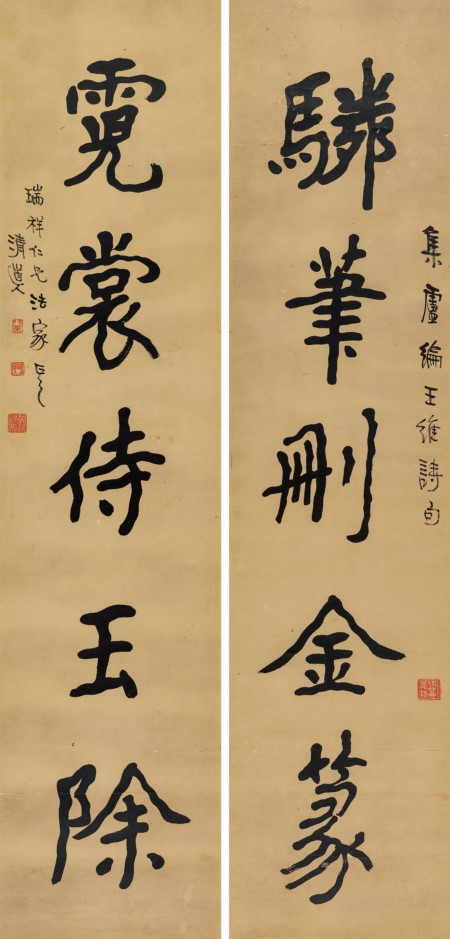 驎筆刪金篆
集盧綸王維詩句
霓裳侍玉除
瑞祥仁兄法家正之
清道人